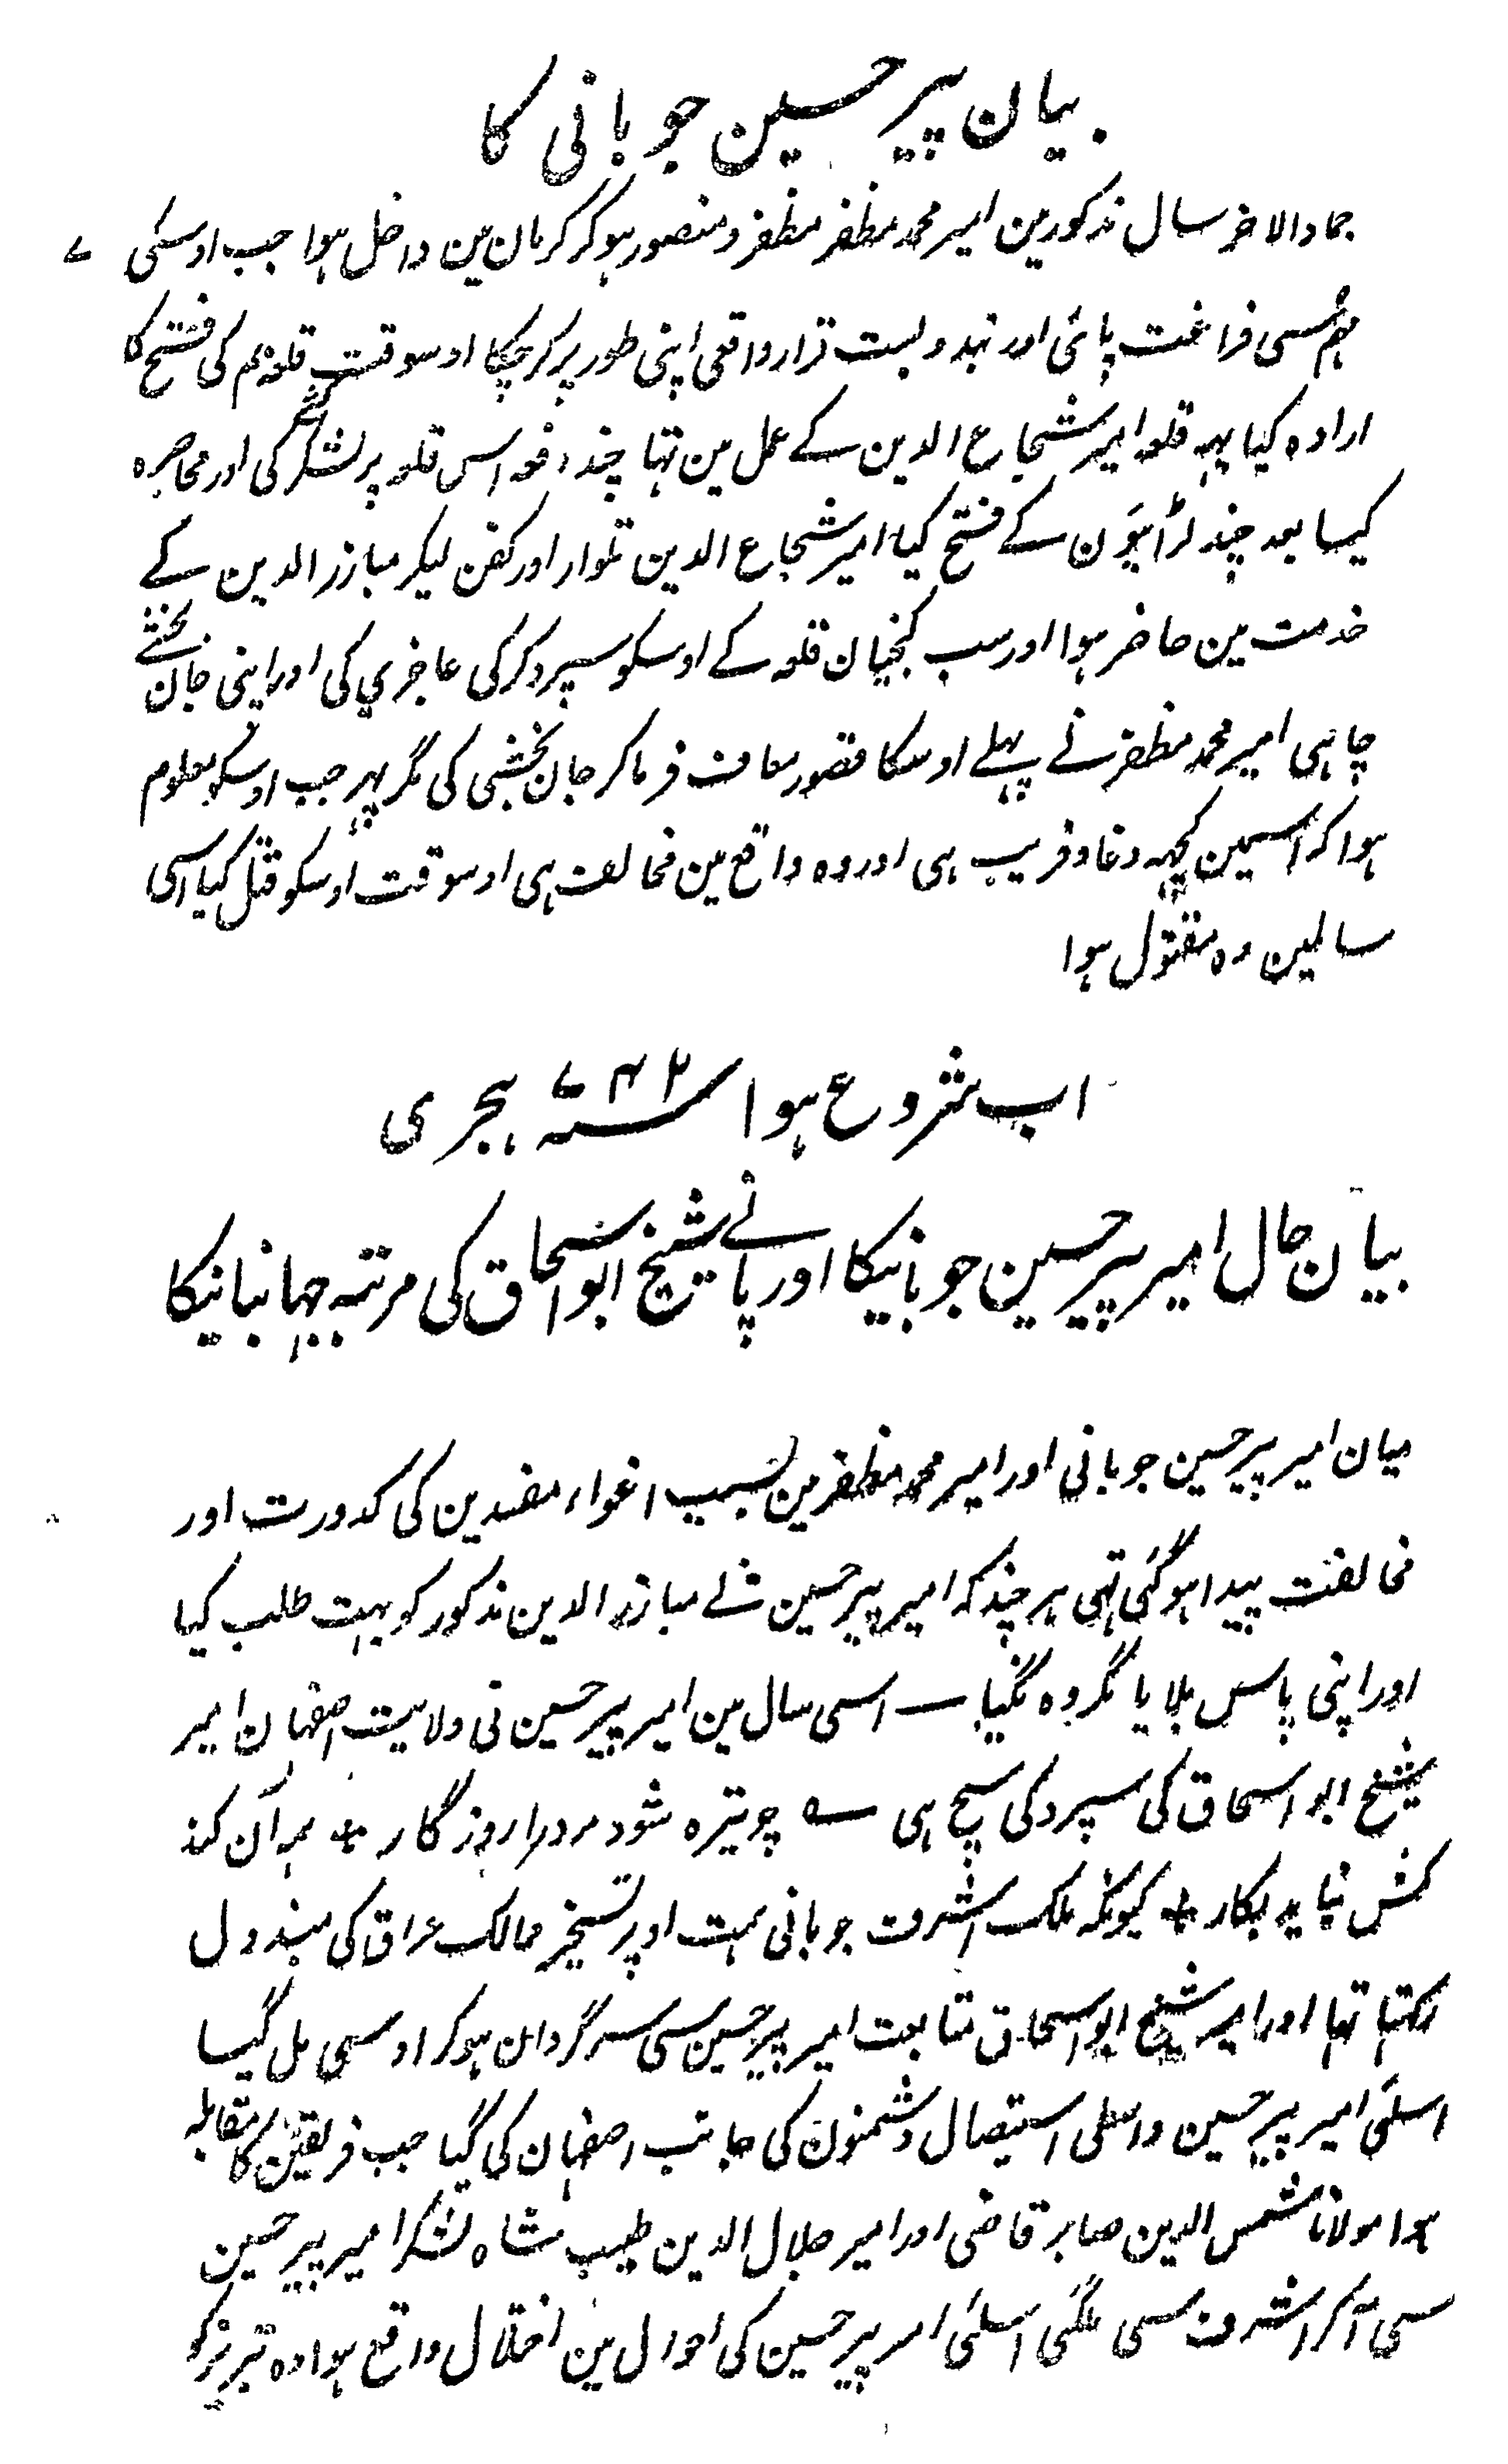 بیان پیر حسین جوبانی کا
جمادالاخر سال مذکور مین امیر محمد مظفر مظفر و منصور ہوکر کرمان مین داخل ہوا جب اوسکی
مہم سی فراغت پائی اور بندوبست قرار واقعی اپنی طور پر کرچکا اوسوقت قلعہ بم کی فتح کا
ارادہ کیا یہہ قلعہ امیر شجاع الدین کے عمل مین تہا چند دفعہ اس قلعہ پر لشکر کی اور محاصرہ
کیا بعد چند لڑائیون کے فتح کیا امیر شجاع الدین تلوار اور کفن لیکر مبارز الدین کے
خدمت مین حاضر ہوا اور سب کنجیان قلعہ کے اوسکو سپرد کرکی عاجزی کی اور اپنی جان بخشے
چاہی امیر محمد مظفر نے پہلے اوسکا قصور معاف فرماکر جان بخشی کی مگر پہر جب اوسکو معلوم
ہوا کہ اسمین کچہہ دغا و فریب ہی اور وہ واقع مین مخالف ہی اوسوقت اوسکو قتل کیا اسی
سالمین وہ مقتول ہوا
اب شروع ہوا ۷۴۲ سنہ ہجری
بیان حال امیر پیر حسین جوبانیکا اور پانے شیخ ابو اسحاق کی مرتبہ جہانبانیکا
میان امیر پیر حسین جوبانی اور امیر محمد مظفر مین بسبب اغواء مفسدین کی کدورت اور
مخالفت پیدا ہوگئی تہی ہر چند کہ امیر پیر حسین نے مبارز الدین مذکور کو بہت طلب کیا
اور اپنی پاس بلایا مگر وہ نگیا ۔ اسی سال مین امیر پیر حسین نی ولایت اصفہان امیر
شیخ ابو اسحاق کی سپرد کی سچ ہی ؎ چو تیرہ شود مرد را روزگار * ہمہ آن کند
کش نیاید بکار * کیونکہ ملک اشرف جوبانی ہمت اوپر تسخیر ممالک عراق کی مبذول
رکہتا تہا اور امیر شیخ ابو اسحاق متابعت امیر پیر حسین سی سرگردان ہوکر اوسی مل گیا
اسلئی امیر پیر حسین واسطی استیصال دشمنون کی جانب اصفہان کی گیا جب فریقین کا مقابلہ
ہوا مولانا شمس الدین صابر قاضی اور امیر جلال الدین طیب شاہ لشکر امیر پیر حسین
سی آکر اشرف سی ملگئی اسلئی امیر پیر حسین کی احوال مین اختلال واقع ہوا وہ تبریز کو